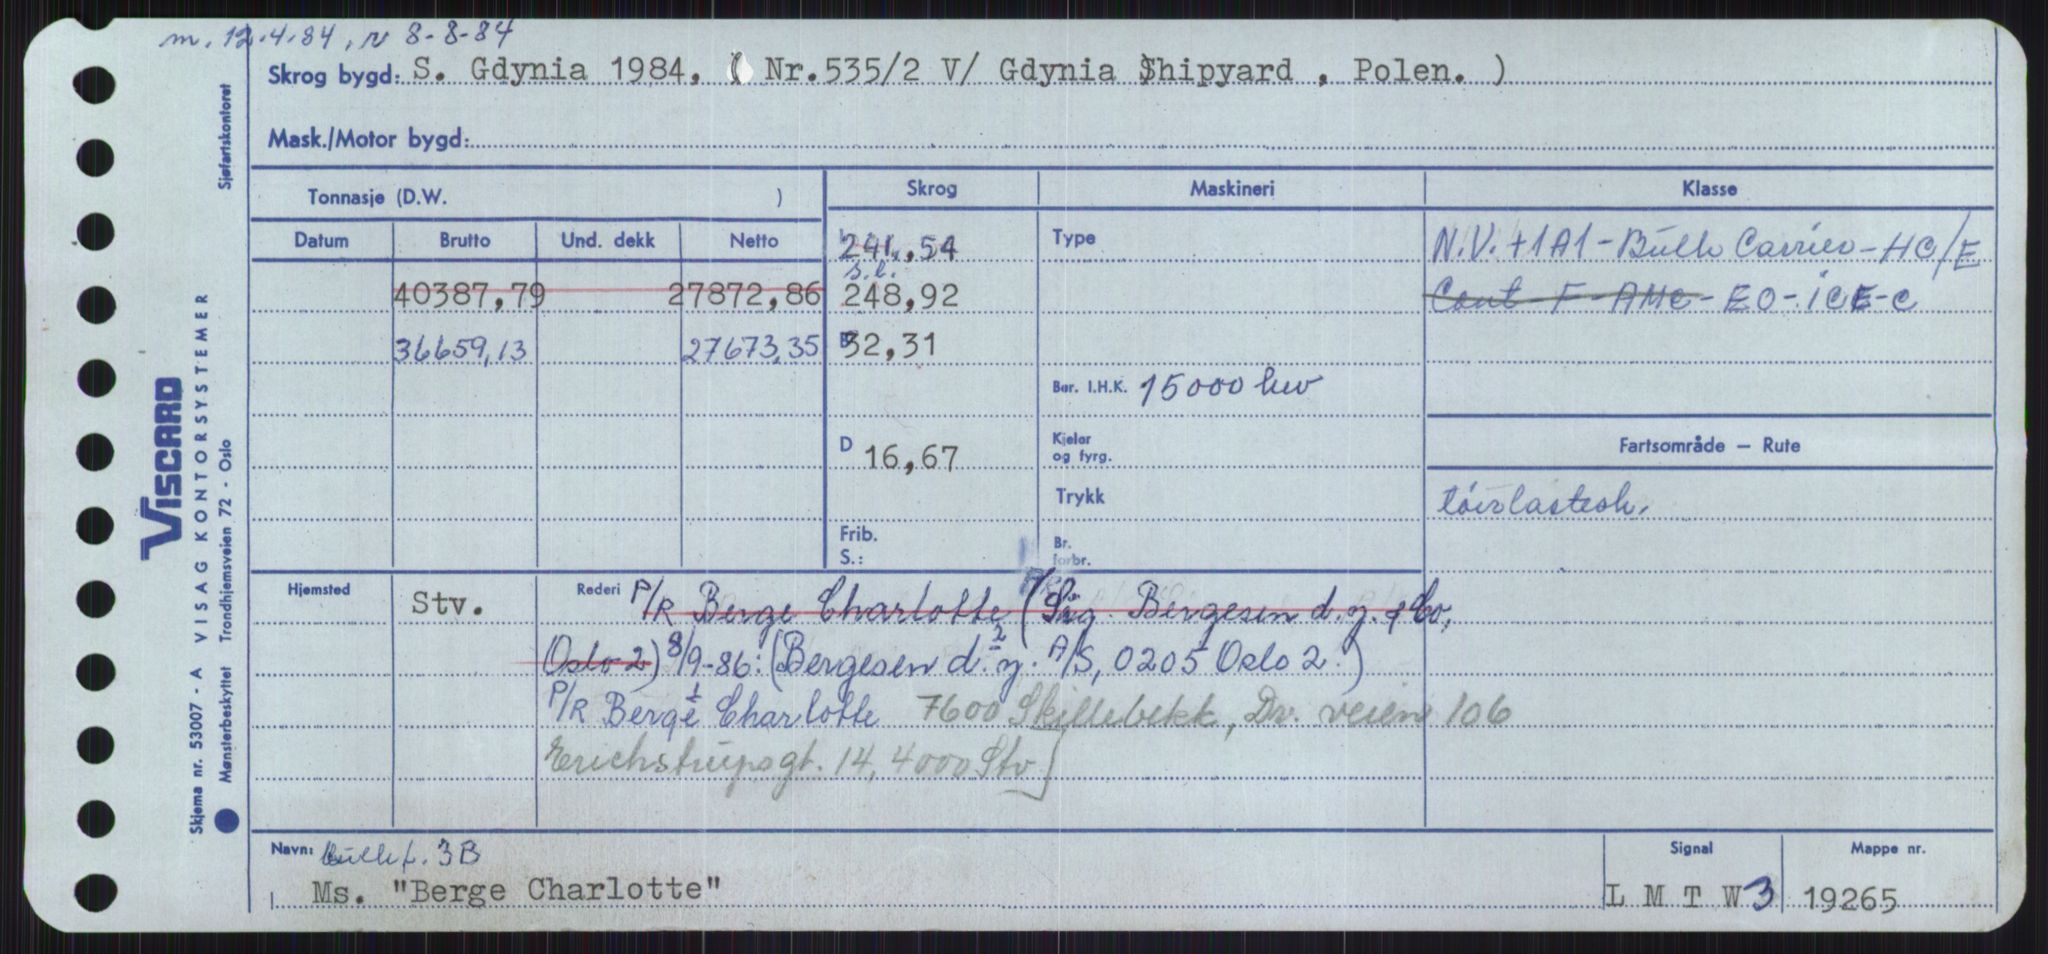 m. 12.4.84, r 8-8-84
Skrog bygd: S. Gdynia 1984, ( Nr.535/2 V/ Gdynia Shipyard , Polen. )
Mask./Motor bygd:
Tonnasje (D.W. )
Skrog Maskineri Klasse
Datum Brutto Und. dekk Netto
241,54 Type N.V. +1A1 - Bulk Carrier - HC/E
s.l.
40387,79 27872,86 248,92 Cont - F - AMC - EO - ICE-C
36659,13 27673,35 B 32,31
Ber. I.H.K. 15000 hkv
D 16,67 Kjeler og fyrg. Fartsområde — Rute
Trykk tørrlastesk.
Frib. S.: Br. forbr.
Hjemsted Stv. Rederi P/R Berge Charlotte (Sig. Bergesen d.y. & Co,
Oslo 2) 8/9-86: (Bergesen d.y. 2 A/S, 0205 Oslo 2.)
P/R Berge Charlotte 1 7600 Skillebekk, Dr. veien 106
Erichstrupsgt. 14, 4000 Stv]
Navn: bulksk. 3B Signal Mappe nr.
Ms. "Berge Charlotte" L M T W 3 19265
VISCARD
Skjema nr. 53007 - A VISAG KONTORSYSTEMER
Mønsterbeskyttet Trondhjemsveien 72 - Oslo
Sjøfartskontoret